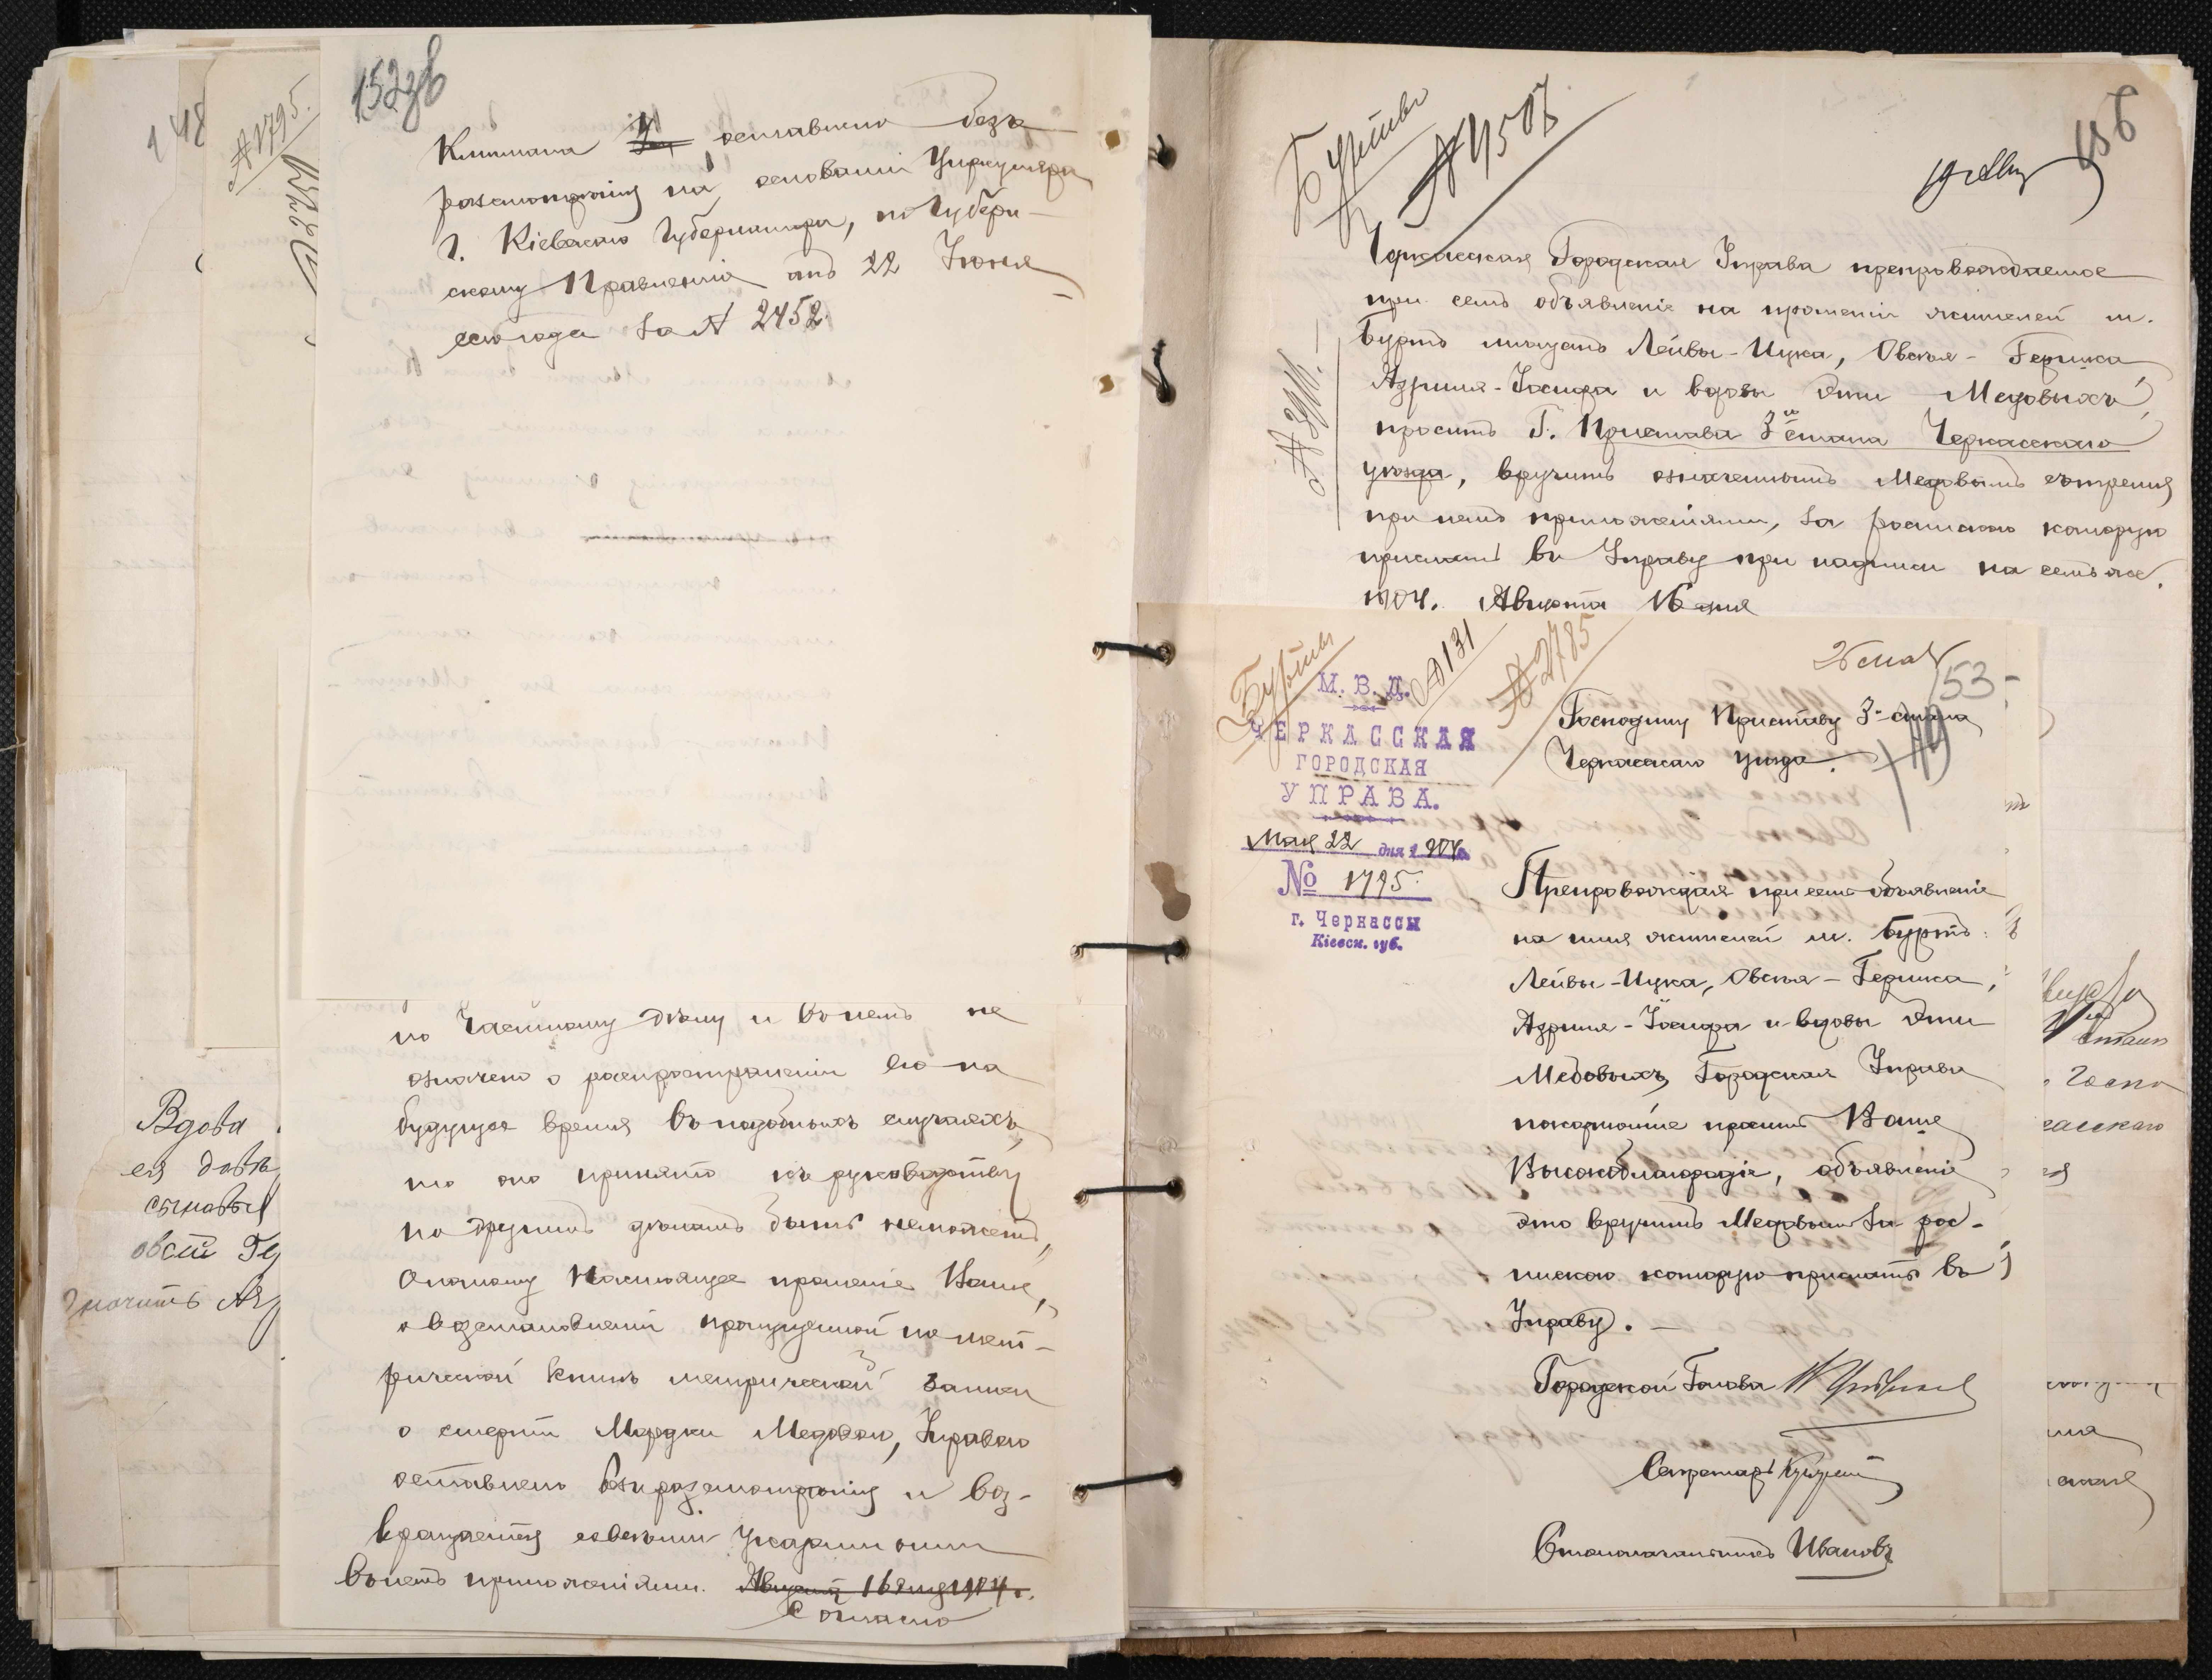 152зв
оставлено безъ
разсмотренія на основаніи Циркуляра
Г. Кіевскаго Губернатора, по Губерн-
скому Правленію отъ 22 Іюня
сего года за № 2452.
по Частному делу и въ немъ не
означено о распространеніи его на
будущее время въ подобныхъ случаяхъ,
то оно принято къ руководству
по другимъ деламъ быть неможетъ,
А потому Настоящее прошеніе Ваше,
о возстановленіи пропущенной по мет-
рической книге метрической записи
о смерти Мордки Медового, Управою
оставлено безъ разсмотренія и воз-
вращается со всеми указанными
въ немъ приложеніями. Августа 16 дня 1904 г.
Согласно
148
№ 1795.
Вдова
ея
сыновья
овсій Ге
значитъ
Бурты
№ 4507
156
№ 3911.
Черкасская Городская Управа препровождаемое
при семъ объявленіе на прошеніи жителей м.
Буртъ мещанъ Лейбы-Ицка, Овсея-Гершка,
Азриля-Іосифа и вдовы Эти Медовыхъ,
проситъ Г. Пристава 3й стана Черкасскаго
уезда, вручить означеннымъ Медовымъ съ тремя
при немъ приложеніями, за роспискою которую
прислать въ Управу при надписи на семъ же.
1904. Августа 16 дня
Бурты
№ 131
№ 2785
26 мая
153
М. В. Д.
ЧЕРКАССКАЯ
ГОРОДСКАЯ
УПРАВА.
Мая 22 дня 1904 г.
№ 1795.
г. Черкассы
Кіевск. губ.
Господину Приставу 3 стана
Черкасскаго уезда.
Препровождая при семъ объявленіе
на имя жителей м. Буртъ
Лейбы-Ицка, Овсея-Гершка,
Азриля-Іосифа и вдовы Эти
Медовыхъ, Городская Управа
покорнейше проситъ Ваше
Высокоблагородіе, объявленіе
это вручить Медовымъ за рос-
пискою которую прислать въ
Управу.
Городской Голова
Секретарь
Столоначальникъ Ивановъ